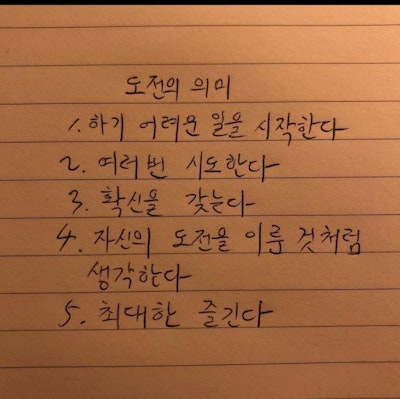 도전의 의미
1. 하기 어려운 일을 시작한다
2. 여러번 시도한다
3. 확신을 갖는다
4. 자신의 도전을 이룬 것처럼
생각한다
5. 최대한 즐긴다